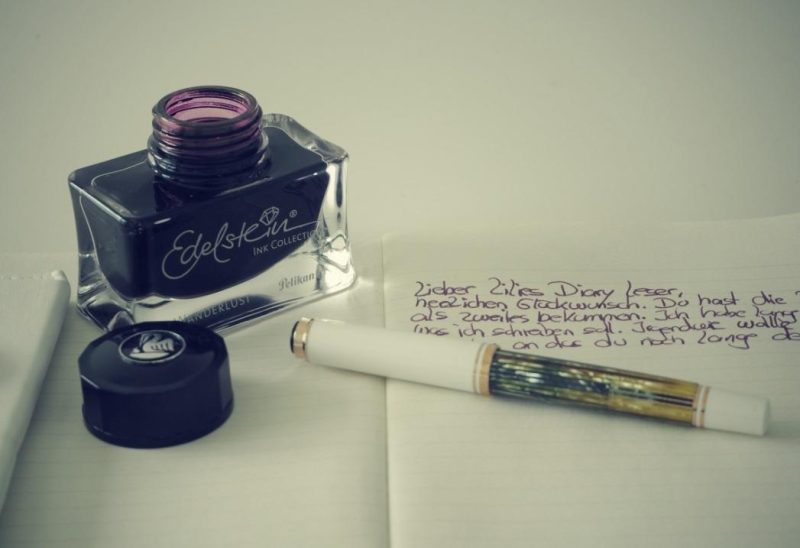 Edelstein®
INK COLLECTION
Pelikan
WANDERLUST
Lieber Zities Diary Leser,
herzlichen Glückwunsch. Du hast die
als zweites bekommen. Ich habe lang
was ich schreiben soll. Irgendwie wollte
an das du noch lange